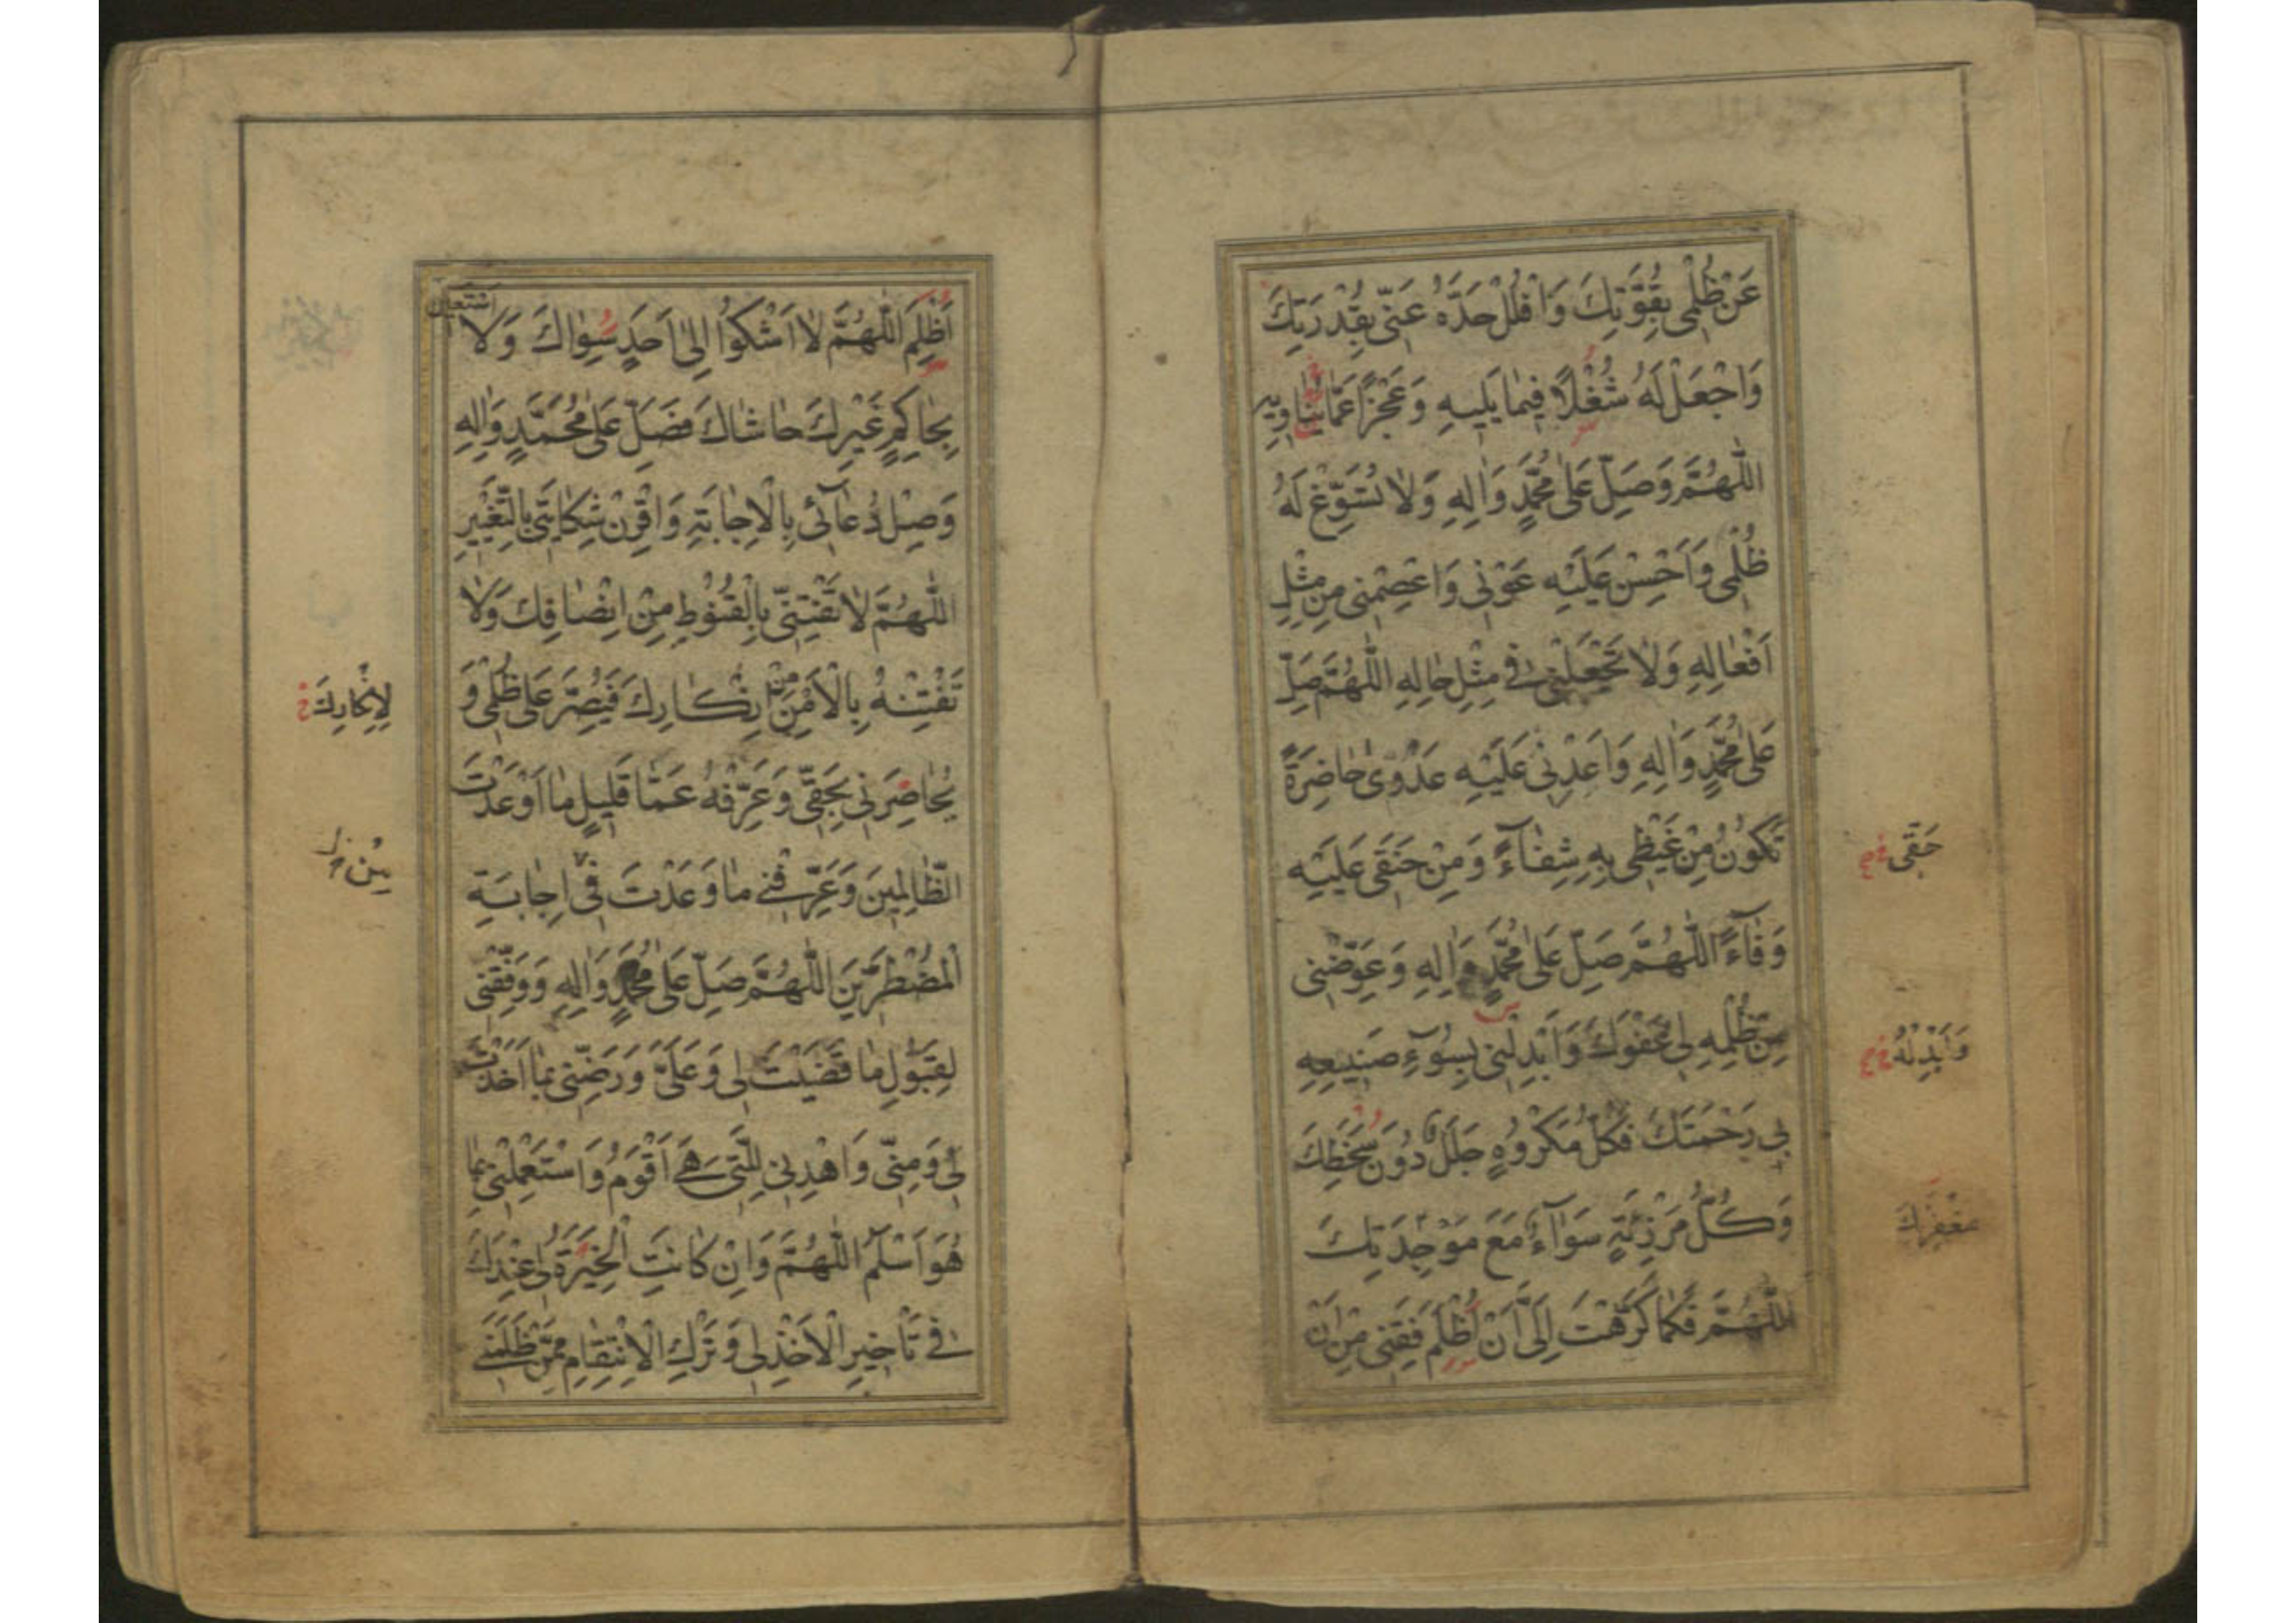 عَنْ ظُلْمِی بِقُوَّتِكَ وَافْلُلْ حَدَّهُ عَنّی بِقُدْرَتِكَ
وَاجْعَلْ لَهُ شُغْلًا فِیمَا یَلِیهِ وَعَجْزًا عَمَّا یُنَاوِیهِ
اللّٰهُمَّ وَصَلِّ عَلٰی مُحَمَّدٍ وَاٰلِهِ وَلَا تُسَوِّغْ لَهُ
ظُلْمِی وَاَحْسِنْ عَلَیْهِ عَوْنِی وَاعْصِمْنِی مِنْ مِثْلِ
اَفْعَالِهِ وَلَا تَجْعَلْنِی فِی مِثْلِ حَالِهِ اللّٰهُمَّ صَلِّ
عَلٰی مُحَمَّدٍ وَاٰلِهِ وَاَعْدِنِی عَلَیْهِ عَدْوٰی حَاضِرَةً
تَكُونُ مِنْ غَیْظِی بِهِ شِفَاۤءً وَمِنْ حَنَقِی عَلَیْهِ
حَقّی
وَفَاۤءً اللّٰهُمَّ صَلِّ عَلٰی مُحَمَّدٍ وَاٰلِهِ وَعَوِّضْنِی
مِنْ ظُلْمِهِ لِی عَفْوَكَ وَاَبْدِلْنِی بِسُوۤءِ صَنِیعِهِ
وَاَبْدِلْهُ
بِی رَحْمَتَكَ فَكُلُّ مَكْرُوهٍ جَلَلٌ دُونَ سَخَطِكَ
وَكُلُّ مَرْزِئَةٍ سَوَاۤءٌ مَعَ مَوْجِدَتِكَ
اللّٰهُمَّ فَكَمَا كَرَّهْتَ اِلَیَّ اَنْ اُظْلَمَ فَقِنِی مِنْ اَنْ
اَظْلِمَ اللّٰهُمَّ لَا اَشْكُوا اِلٰی اَحَدٍ سِوَاكَ وَلَا اَسْتَعِینُ
بِحَاكِمٍ غَیْرِكَ حَاشَاكَ فَصَلِّ عَلٰی مُحَمَّدٍ وَاٰلِهِ
وَصِلْ دُعَاۤئِی بِالْاِجَابَةِ وَاقْرِنْ شِكَایَتِی بِالتَّغْیِیرِ
اللّٰهُمَّ لَا تَفْتِنِّی بِالْقُنُوطِ مِنْ اِنْصَافِكَ وَلَا
تَفْتِنْهُ بِالْاَمْنِ مِنْ اِنْكَارِكَ فَیُصِرَّ عَلٰی ظُلْمِی وَ
لِاِنْكَارِكَ
یُحَاضِرَنِی بِحَقّی وَعَرِّفْهُ عَمَّا قَلِیلٍ مَا اَوْعَدْتَ
الظَّالِمِینَ وَعَرِّفْنِی مَا وَعَدْتَ فِی اِجَابَةِ
الْمُضْطَرِّینَ اللّٰهُمَّ صَلِّ عَلٰی مُحَمَّدٍ وَاٰلِهِ وَوَفِّقْنِی
لِقَبُولِ مَا قَضَیْتَ لِی وَعَلَیَّ وَرَضِّنِی بِمَا اَخَذْتَ
لِی وَمِنّی وَاهْدِنِی لِلَّتِی هِیَ اَقْوَمُ وَاسْتَعْمِلْنِی بِمَا
هُوَ اَسْلَمُ اللّٰهُمَّ وَاِنْ كَانَتِ الْخِیَرَةُ لِی عِنْدَكَ
فِی تَأْخِیرِ الْاَخْذِ لِی وَتَرْكِ الْاِنْتِقَامِ مِمَّنْ ظَلَمَنِی